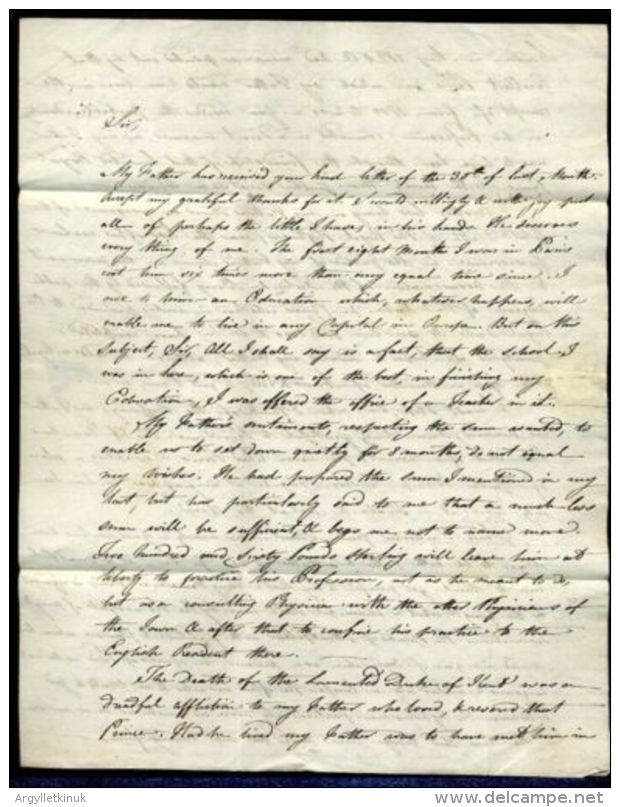 Sir,
My Father has received your kind letter of the 30th of last Month.
Accept my grateful thanks for it. I would willingly & with joy put
all of perhaps the little I have, in his hands. He deserves
every thing of me. The first eight Months I was in Paris
cost him six times more than any equal time since. I
owe to him an Education which, whatever happens, will
enable me to live in any Capital in Europe. But on this
Subject, Sir, All I shall say is a fact, that the School I
was in here, which is one of the best, in finishing my
Education, I was offered the office of a Teacher in it.
My Father's sentiments, respecting the sum wanted, to
enable us to set down quietly for 8 months, do not equal
my wishes. He had proposed the sum I mentioned in my
last, but has particularly said to me that a much less
sum will be sufficient, & begs me not to name more.
Two hundred and Sixty Pounds Sterling will leave him at
liberty to practice his Profession, not as he meant to do,
but as a consulting Physician with the other Physicians of
the Town & after that to confine his practice to the
English Resident there.
The Death of the Lamented Duke of Kent was a
dreadful affliction to my Father who loved, & revered that
Prince. Had he lived my Father was to have met him in
Argylletkinuk
www.delcampe.net